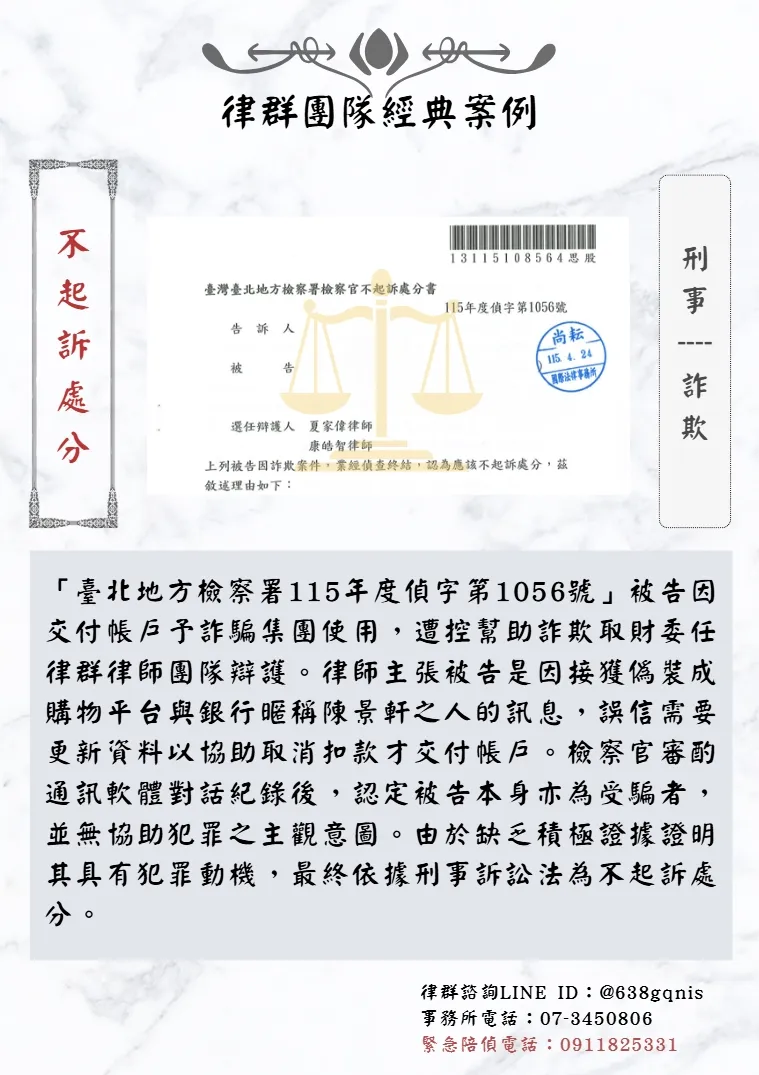 律群團隊經典案例
不起訴處分
13115108564思股
臺灣臺北地方檢察署檢察官不起訴處分書
115年度偵字第1056號
告訴人
被告
尚耘
115. 4. 24
國際法律事務所
選任辯護人 夏家偉律師
康皓智律師
上列被告因詐欺案件,業經偵查終結,認為應該不起訴處分,茲
敘述理由如下:
刑事----詐欺
「臺北地方檢察署115年度偵字第1056號」被告因
交付帳戶予詐騙集團使用,遭控幫助詐欺取財委任
律群律師團隊辯護。律師主張被告是因接獲偽裝成
購物平台與銀行暱稱陳景軒之人的訊息,誤信需要
更新資料以協助取消扣款才交付帳戶。檢察官審酌
通訊軟體對話紀錄後,認定被告本身亦為受騙者,
並無協助犯罪之主觀意圖。由於缺乏積極證據證明
其具有犯罪動機,最終依據刑事訴訟法為不起訴處
分。
律群諮詢LINE ID:@638gqnis
事務所電話:07-3450806
緊急陪偵電話:0911825331